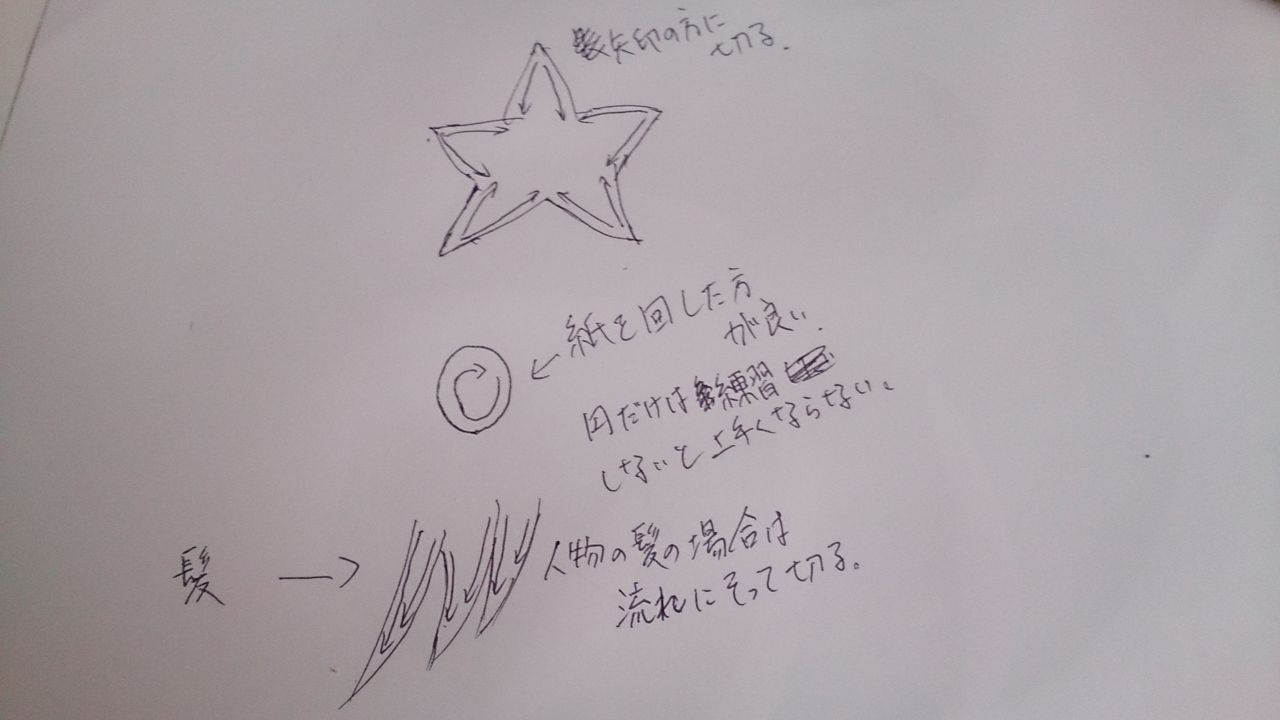 矢印の方に
切る.
紙を回した方
が良い.
円だけは練習
しないと上手くならない。
髪
人物の髪の場合は
流れにそって切る。